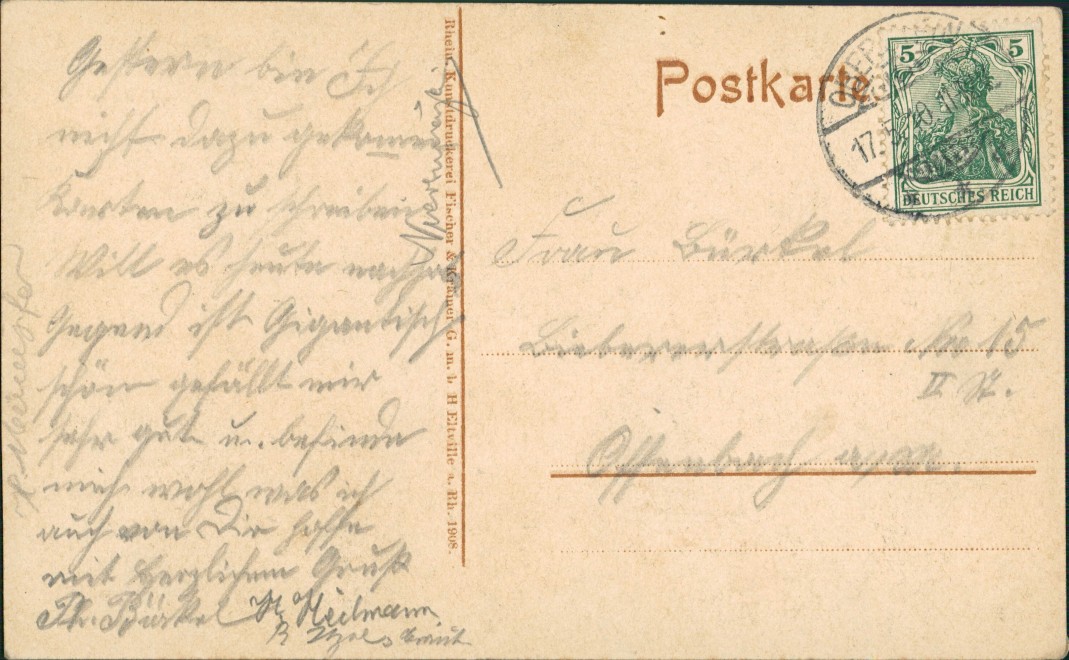 Gestern bin Ich
nicht dazu gekommen
Karten zu schreiben
Will es heute nachho
Gegend ist Gigantisch
schön gefällt mir
sehr gut u. befinde
mich wohl was ich
auch von Dir hoffe
mit herzlichem Gruß
Th. Bürkel Heilmann
Rhein. Kunstdruckerei Fischer & Krämer G. m. b. H Eltville a. Rh. 1908.
Postkarte
5 5
DEUTSCHES REICH
17.
Frau Bürkel
Biebererstraße No 15
II St.
Offenbach a/M.